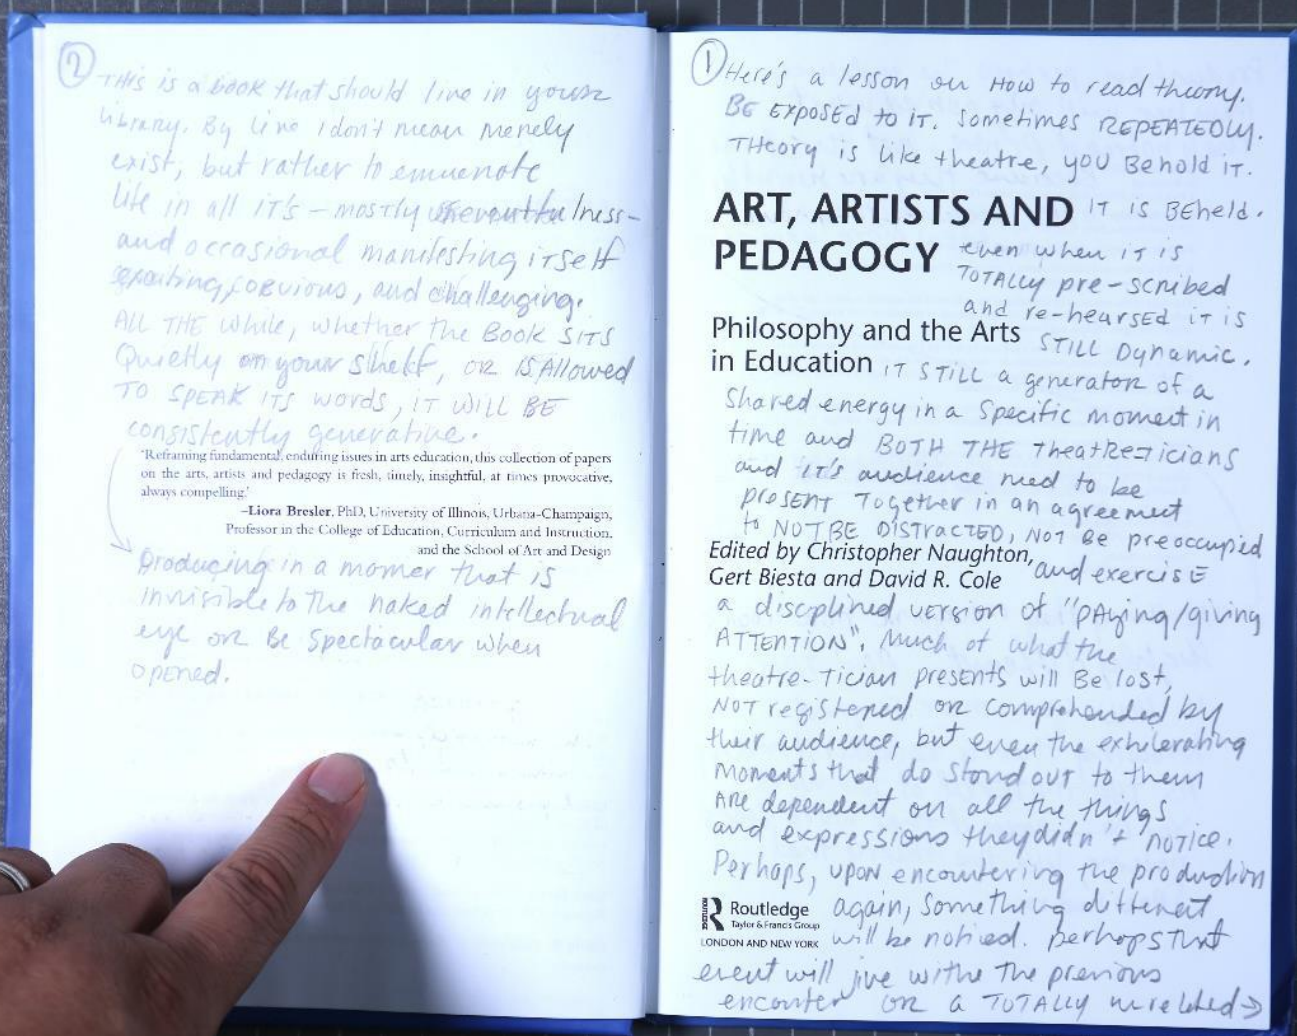 ②
THIS IS A BOOK that should live in your
library. By live I don't mean merely
exist, but rather to emuenate
life in all IT'S – mostly uneventfulness –
and occasional manifesting ITSelf
exciting, obvious, and challenging.
ALL THE while, whether the BOOK SITS
Quietly on your shelf, OR IS Allowed
TO SPEAK ITS words, IT WILL BE
consistently generative.
'Reframing fundamental, enduring issues in arts education, this collection of papers
on the arts, artists and pedagogy is fresh, timely, insightful, at times provocative,
always compelling.'
–Liora Bresler, PhD, University of Illinois, Urbana-Champaign,
Professor in the College of Education, Curriculum and Instruction,
and the School of Art and Design
producing in a manner that is
invisible to the naked intellectual
eye or BE Spectacular when
opened.
①
Here's a lesson on How to read theory.
BE EXPOSED TO IT. Sometimes REPEATEDLY.
THeory is like theatre, you Behold IT.
ART, ARTISTS AND IT IS BEheld.
PEDAGOGY even when IT IS
TOTALLY pre-scribed
and re-hearsed IT IS
Philosophy and the Arts STILL Dynamic.
in Education IT STILL a generator of a
shared energy in a specific moment in
time and BOTH THE TheatRe-ticians
and it's audience need to be
present Together in an agreement
to NOT BE DISTRACTED, NOT BE preoccupied
Edited by Christopher Naughton, and exercise
Gert Biesta and David R. Cole
a disciplined version of "PAying/giving
ATTENTION". Much of what the
theatre-Tician presents will Be lost,
NOT registered or comprehended by
their audience, but even the exhilerating
moments that do stand out to them
ARE dependent on all the things
and expressions they didn't notice.
Perhaps, upon encountering the production
Routledge again, Something different
Taylor & Francis Group
ROUTLEDGE
LONDON AND NEW YORK will be noticed. perhaps that
event will jive withe The previous
encounter OR a TOTALLY unrelated →